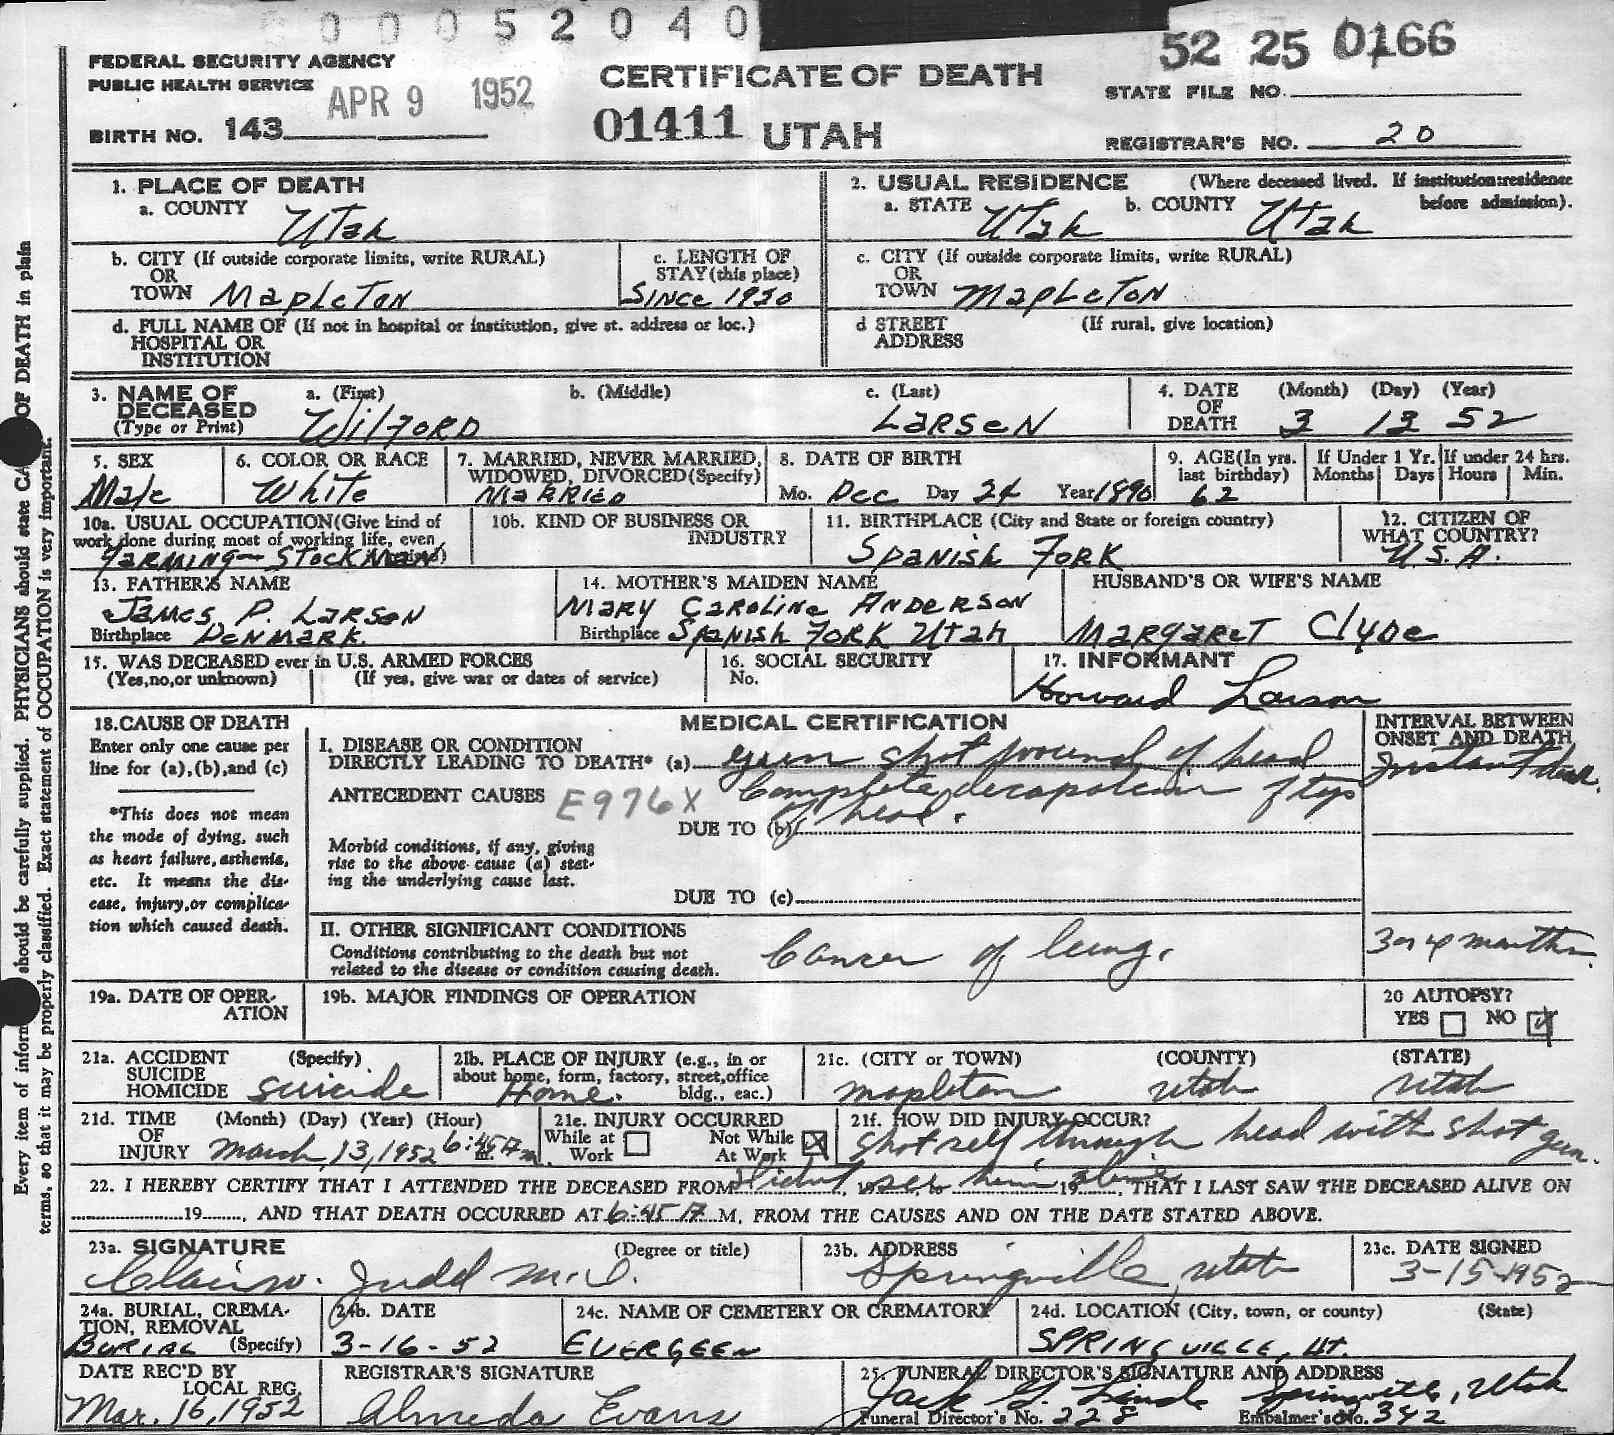 00052040
52 25 0166
FEDERAL SECURITY AGENCY
PUBLIC HEALTH SERVICE
APR 9 1952
CERTIFICATE OF DEATH
STATE FILE NO.
BIRTH NO. 143
01411 UTAH
REGISTRAR'S NO. 20
1. PLACE OF DEATH
a. COUNTY Utah
2. USUAL RESIDENCE (Where deceased lived. If institution:residence before admission).
a. STATE Utah b. COUNTY Utah
b. CITY (If outside corporate limits, write RURAL)
OR
TOWN Mapleton
c. LENGTH OF
STAY (this place)
Since 1950
c. CITY (If outside corporate limits, write RURAL)
OR
TOWN Mapleton
d. FULL NAME OF (If not in hospital or institution, give st. address or loc.)
HOSPITAL OR
INSTITUTION
d STREET (If rural, give location)
ADDRESS
3. NAME OF DECEASED
(Type or Print)
a. (First) b. (Middle) c. (Last)
Wilford Larsen
4. DATE OF DEATH (Month) (Day) (Year)
3 13 52
5. SEX
Male
6. COLOR OR RACE
White
7. MARRIED, NEVER MARRIED,
WIDOWED, DIVORCED (Specify)
Married
8. DATE OF BIRTH
Mo. Dec Day 24 Year 1890
9. AGE (In yrs.
last birthday)
62
If Under 1 Yr.
Months Days
If under 24 hrs.
Hours Min.
10a. USUAL OCCUPATION (Give kind of
work done during most of working life, even
Farming - Stockman
10b. KIND OF BUSINESS OR
INDUSTRY
11. BIRTHPLACE (City and State or foreign country)
Spanish Fork
12. CITIZEN OF
WHAT COUNTRY?
U.S.A.
13. FATHER'S NAME
James P. Larson
Birthplace Denmark.
14. MOTHER'S MAIDEN NAME
Mary Caroline Anderson
Birthplace Spanish Fork Utah
HUSBAND'S OR WIFE'S NAME
Margaret Clyde
15. WAS DECEASED ever in U.S. ARMED FORCES
(Yes,no,or unknown) (If yes, give war or dates of service)
16. SOCIAL SECURITY
No.
17. INFORMANT
Howard Larson
18. CAUSE OF DEATH
Enter only one cause per
line for (a),(b),and (c)
*This does not mean
the mode of dying, such
as heart failure, asthenia,
etc. It means the dis-
ease, injury,or complica-
tion which caused death.
MEDICAL CERTIFICATION
I. DISEASE OR CONDITION
DIRECTLY LEADING TO DEATH* (a) gun shot wound of head
ANTECEDENT CAUSES E976X Complete of top
of head.
DUE TO (b)
Morbid conditions, if any, giving
rise to the above cause (a) stat-
ing the underlying cause last.
DUE TO (c)
II. OTHER SIGNIFICANT CONDITIONS
Conditions contributing to the death but not
related to the disease or condition causing death.
Cancer of lung.
INTERVAL BETWEEN
ONSET AND DEATH
Instant
3 or 4 months.
19a. DATE OF OPER-
ATION
19b. MAJOR FINDINGS OF OPERATION
20 AUTOPSY?
YES NO
21a. ACCIDENT (Specify)
SUICIDE
HOMICIDE suicide
21b. PLACE OF INJURY (e.g., in or
about home, form, factory, street,office
bldg., eac.)
Home.
21c. (CITY or TOWN) (COUNTY) (STATE)
mapleton utah utah
21d. TIME (Month) (Day) (Year) (Hour)
OF
INJURY March, 13, 1952 6:45
21e. INJURY OCCURRED
While at Work Not While At Work
21f. HOW DID INJURY OCCUR?
shot self through head with shot gun.
22. I HEREBY CERTIFY THAT I ATTENDED THE DECEASED FROM Didnt see him alive 19 , THAT I LAST SAW THE DECEASED ALIVE ON
19 , AND THAT DEATH OCCURRED AT 6:45 M, FROM THE CAUSES AND ON THE DATE STATED ABOVE.
23a. SIGNATURE (Degree or title)
Judd M.D.
23b. ADDRESS
Springville, Utah
23c. DATE SIGNED
3-15-1952
24a. BURIAL, CREMA-
TION, REMOVAL
(Specify)
Burial
24b. DATE
3-16-52
24c. NAME OF CEMETERY OR CREMATORY
Evergeen
24d. LOCATION (City, town, or county) (State)
Springville, Ut.
DATE REC'D BY
LOCAL REG.
Mar. 16, 1952
REGISTRAR'S SIGNATURE
Almeda Evans
25. FUNERAL DIRECTOR'S SIGNATURE AND ADDRESS
Jack G. Springville, Utah
Funeral Director's No. 228 Embalmer's No. 342
Every item of should be carefully supplied. PHYSICIANS should state OF DEATH in plain
terms, so that it may be properly classified. Exact statement of OCCUPATION is very important.